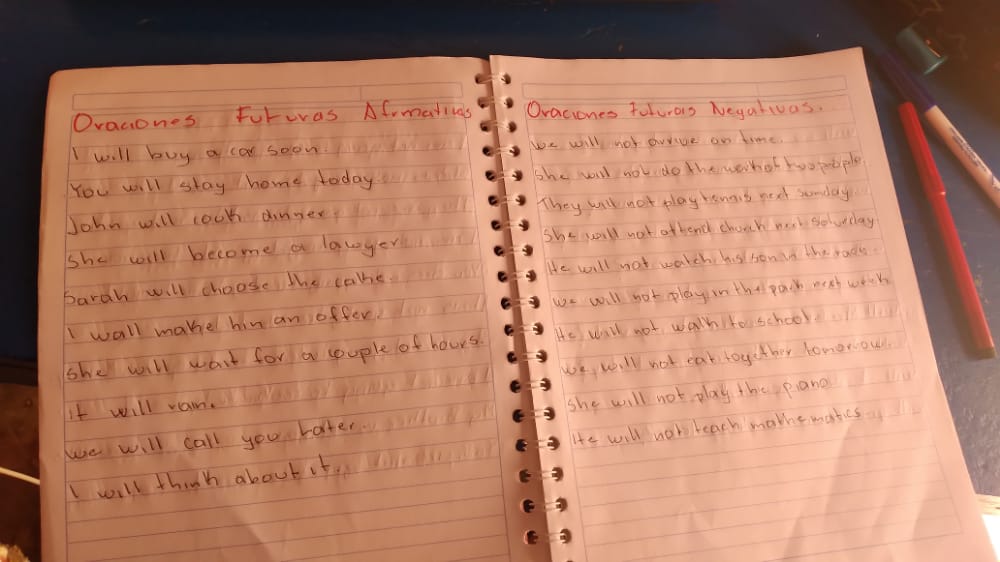 Oraciones Futuras Afirmativas
I will buy a car soon.
You will stay home today
John will cook dinner
She will become a lawyer
Sarah will choose the cake.
I wall make hin an offer.
She will wait for a couple of hours.
it will rain.
we will call you hater.
I will think about it.
Oraciones Futuras Negativas.
we will not arrive on time.
She will not do the work of two people.
They will not play tennis next sunday
She will not attend church next Saturday
He will not watch his son in the
we will not play in the park next week
He will not walk to school.
we will not eat together tomorrow.
She will not play the piano
He will not teach mathematics